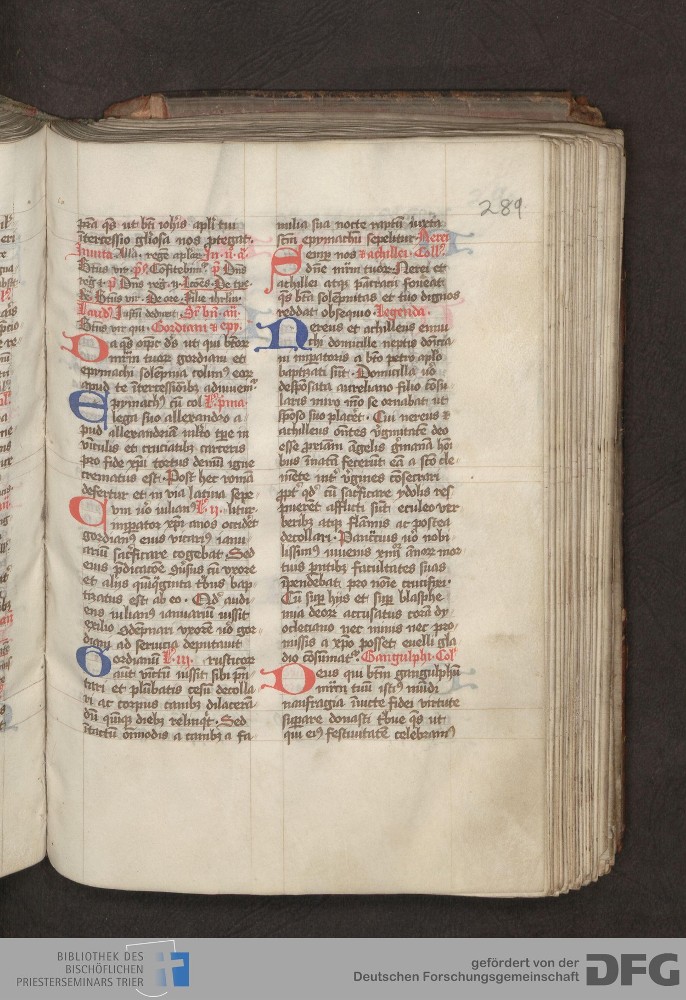 289
p̄ta q̄s ut bt̄i ioh̄is apl̄i tui
ītercessio gl̄iosa nos ꝓtegat·
Inuita· Alla· rege aplor̄· In · ii · ā·
reg ꝉ· p̄ Dn̄s reg · ii · Lc̄oēs · De tr̄e
Btūs vir · De ore · Filie ihrlm̄·
Btūs vir qui · Gordiani ⁊ epy·
Da q̄s om̄p̄ ds̄ ut qui bt̄or̄
mr̄m tuor̄ gordiani et
epymachi solēpnia colim⁹ eor̄
apud te ītercessiōibꝫ adiuuem̄·
Epymach⁹ cū col· L· p̄ma·
lega suo allexandro a
pud allexandriā ml̓to tꝑe in
vīculis et cruciatibꝫ carceris
pro fide xp̄i tortus demū igne
crematus est· Post hec romā
defertur et in via latina sepe
Cum u̓o iulian⁹ L· ii · litur·
imperator xp̄ianos occidꝫ
gordian⁹ eius vicari⁹ ianu
ariū sacrificare cogebat· Sed
eius p̄dicac̄oe ꝯuīsus cū vxore
et aliis quīq̄ginta tribus bap
tizatus est ab eo· Qd̓ audi
ens iulian⁹ ianuariū iussit
exilio ꝯdēpnari vxorē u̓o gor
diani ad seruicia deputauit
Gordianū L· iii · rusticor̄
aut victū iussit sibi p̄sn̄
tari et plūbatis cesū decolla
ri ac corpus canibꝫ dilacerā
dū quīqꝫ diebꝫ relinq̄t· Sed
ītactū om̄ĩodis a canibꝫ a fa
milia sua nocte raptū iuxta
sc̄m epymachū sepelitur· Nerei
Semꝑ nos ⁊ achillei · Coll̄·
dn̄e mr̄m tuor̄ Nerei et
achillei atqꝫ pācracii foueat
q̄s bt̄a solēpnitas et tuo dignos
reddat obsequio· Legenda·
Nereus et achilleus eunu
chi domicille neptis domicia
ni imꝑatoris a bt̄o petro apl̄o
baptizati sūt· Domicilla u̓o
despōsata aureliano filio cōsu
laris miro mō se ornabat ut
sposo suo placet· Cui nereus ⁊
achilleus ōntēs v̓ginitatē deo
esse p̄priam āgelis ꝯg̓manā hōi
bus īnatā fecerūt eā a sc̄o cle
mēte int̓ v̓gines cōsecrari
ꝓpt̓ qd̓ cū sacrificare ydolis res
puerēt afflicti sūt eculeo ver
beribꝫ atqꝫ flāmis ac postea
decollari· Pancrcius u̓o nobi
lissim⁹ iuuenis xiiii ānor̄ mor
tuis pntibꝫ facultates suas
īpendebat ꝓ noīe crucifixi·
Cū suꝑ hiis et suꝑ blasphe
mia deor̄ accusatus corā dy
ocleciano nec minis nec ꝓ
missis a xp̄o posset euelli gla
dio cōsumat᷑· Gangulphi· Col̄·
Deus qui bt̄m gangulphū
mr̄m tuū isti⁹ mūdi
naufragia īuicte fidei virtute
suꝑare donasti t̓bue q̄s ut
qui ei⁹ festiuitatē celebram⁹
BIBLIOTHEK DES
BISCHÖFLICHEN
PRIESTERSEMINARS TRIER
gefördert von der
Deutschen Forschungsgemeinschaft
DFG